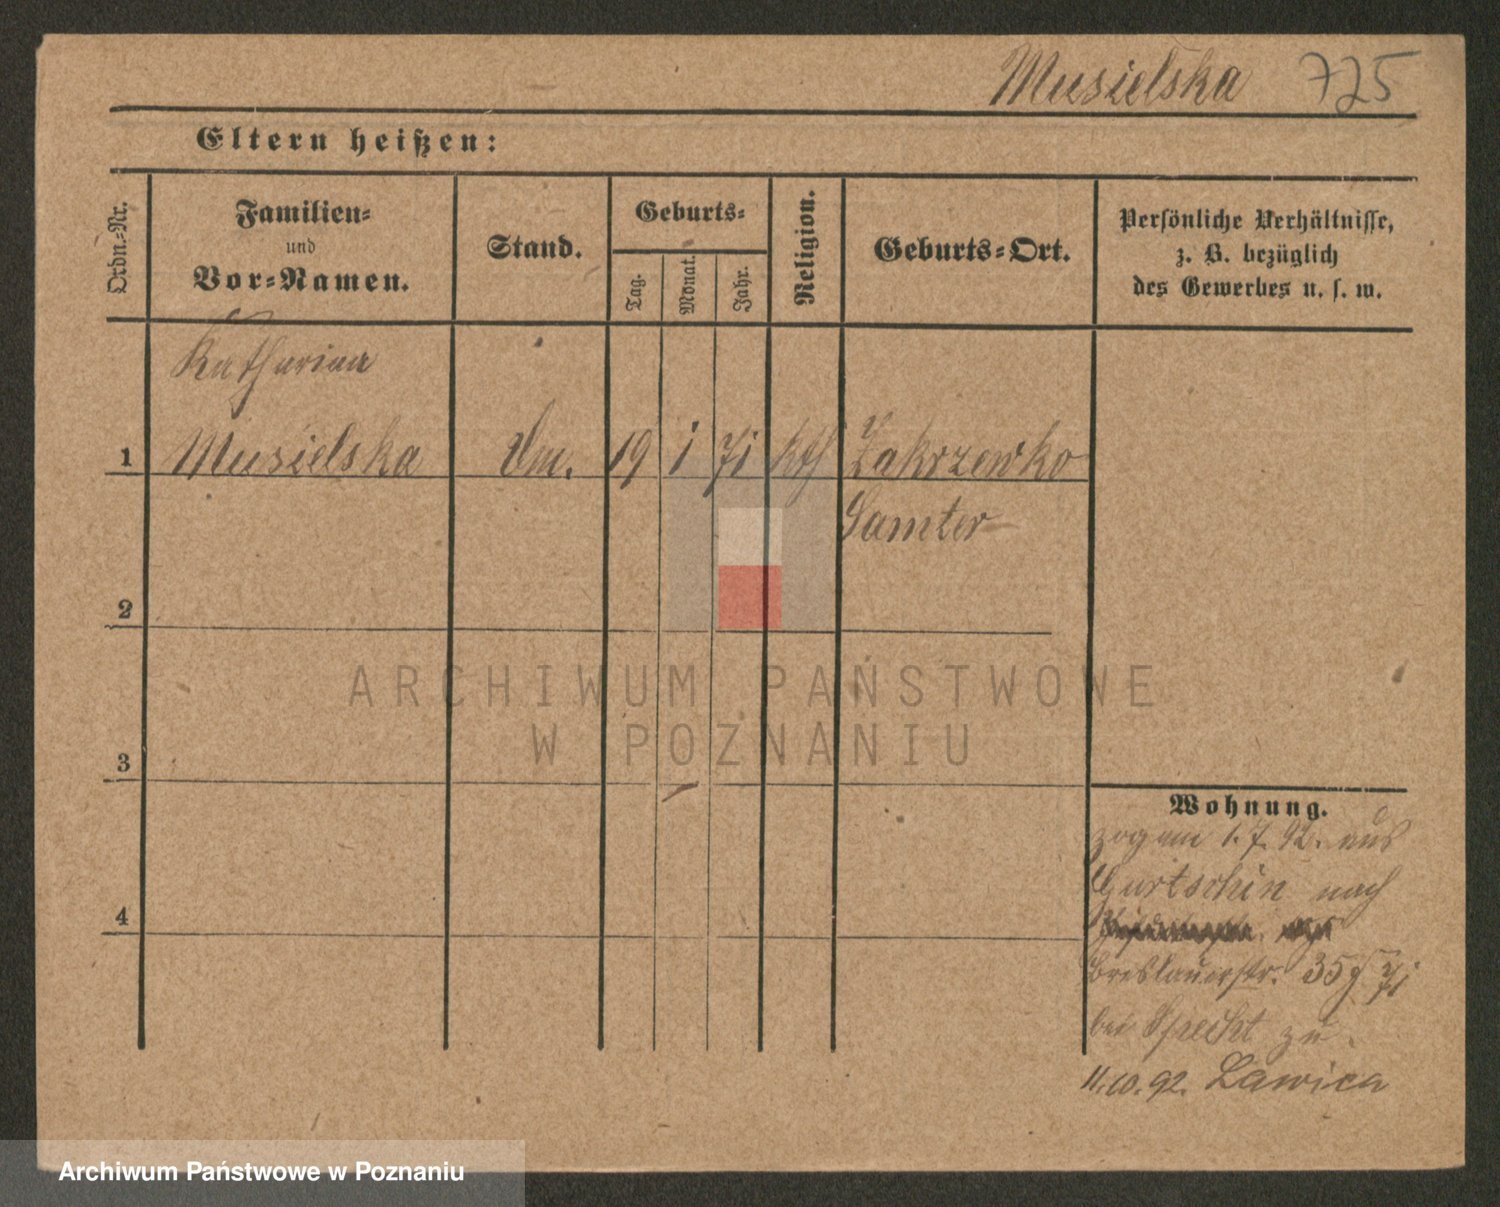 Musielska 725
Eltern heißen:
Ordn.-Nr.
Familien-
und
Vor-Namen.
Stand.
Geburts-
Tag.
Monat.
Jahr.
Religion.
Geburts-Ort.
Persönliche Verhältnisse,
z. B. bezüglich
des Gewerbes u. s. w.
Katharina
1 Musielska 19 1 71 kth Zakrzewko
Samter
2
ARCHIWUM PAŃSTWOWE
W POZNANIU
3
Wohnung.
zog am 1. 7. 92. aus
Gurtschin nach
4
Breslauerstr. 35
bei Specht zu
11.10.92. Lawica
Archiwum Państwowe w Poznaniu